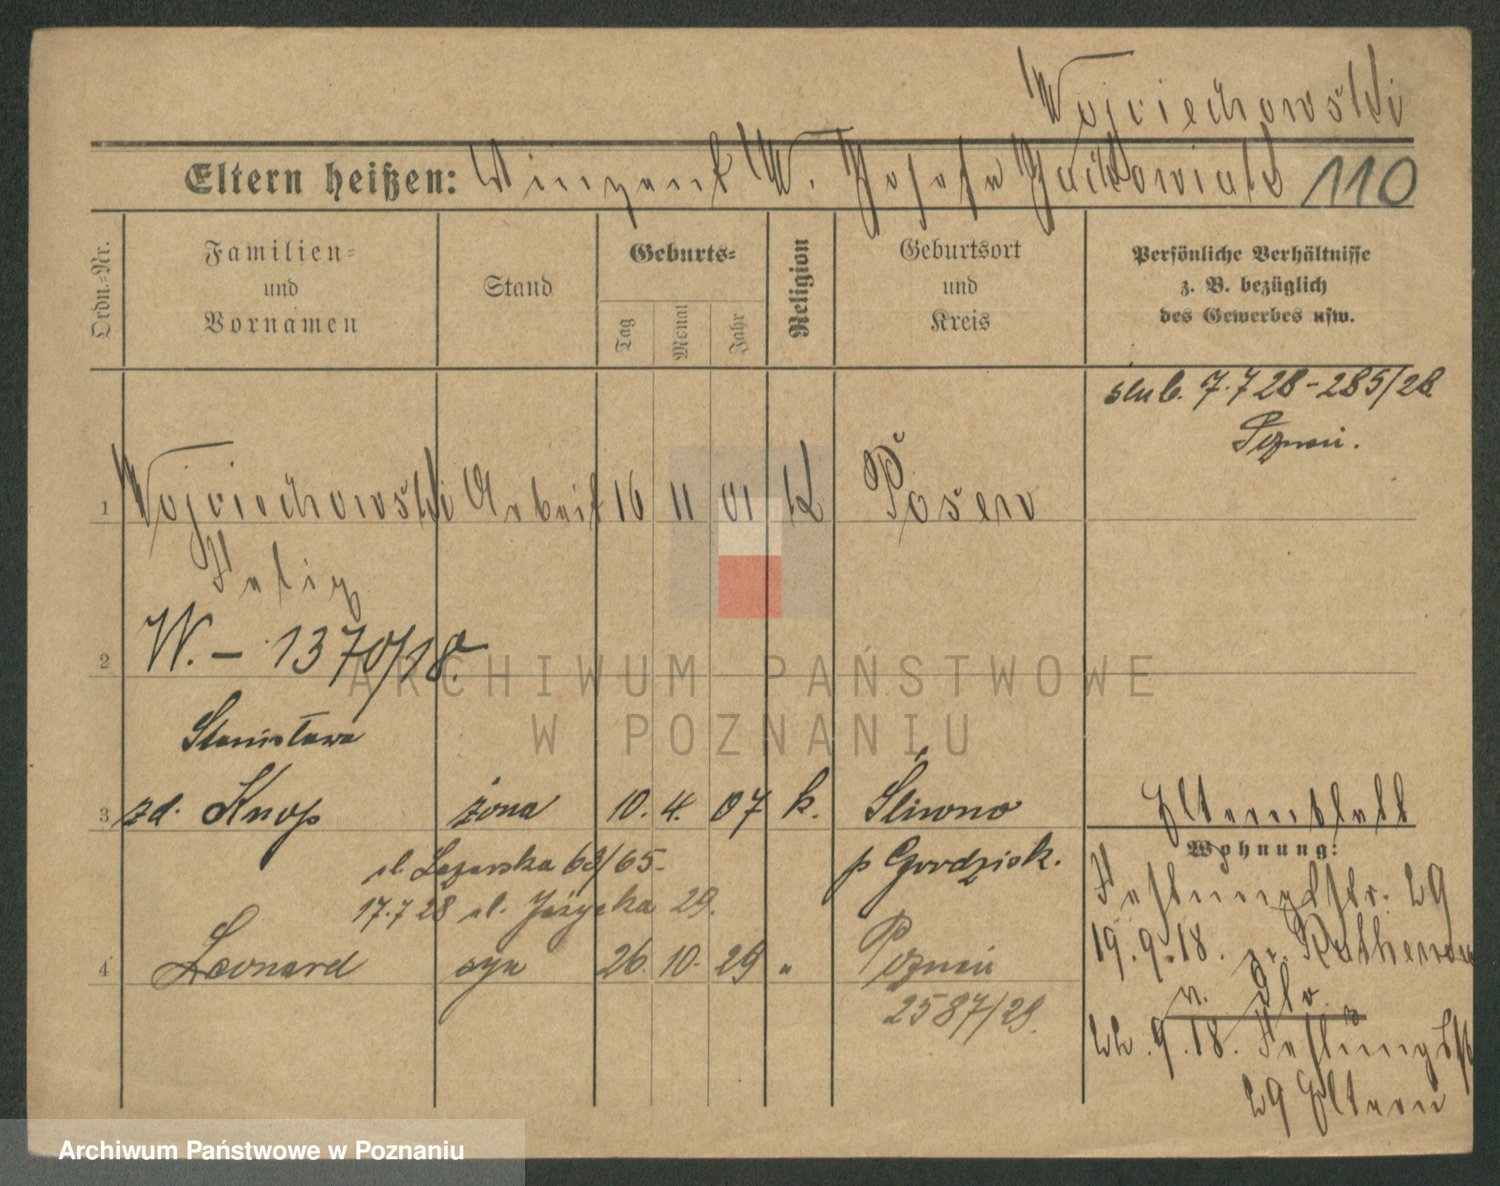 Wojciechowski
Eltern heißen: Winzent W. Josefa Jackowiak 110
Ordn.-Nr.
Familien-
und
Vornamen
Stand
Geburts-
Tag
Monat
Jahr
Religion
Geburtsort
und
Kreis
Persönliche Verhältnisse
z. B. bezüglich
des Gewerbes usw.
ślub. 7.7 28 - 285/28
Poznań.
1 Wojciechowski Arbeit 16 11 01 K Posen
Felix
2 W. - 1370/18.
Stanisława
3 zd. Knop żona 10. 4. 07 k. Śliwno
p Grodzisk.
Elternstelle
Wohnung:
ul. Łazarska 63/65.
17.7 28 ul. Jeżycka 29.
Festungsstr. 29
19.9.18. Rathenow
4 Leonard syn 26. 10. 29 " Poznań
2587/29.
22.9.18. Festungsstr
29 Eltern
ARCHIWUM PAŃSTWOWE
W POZNANIU
Archiwum Państwowe w Poznaniu